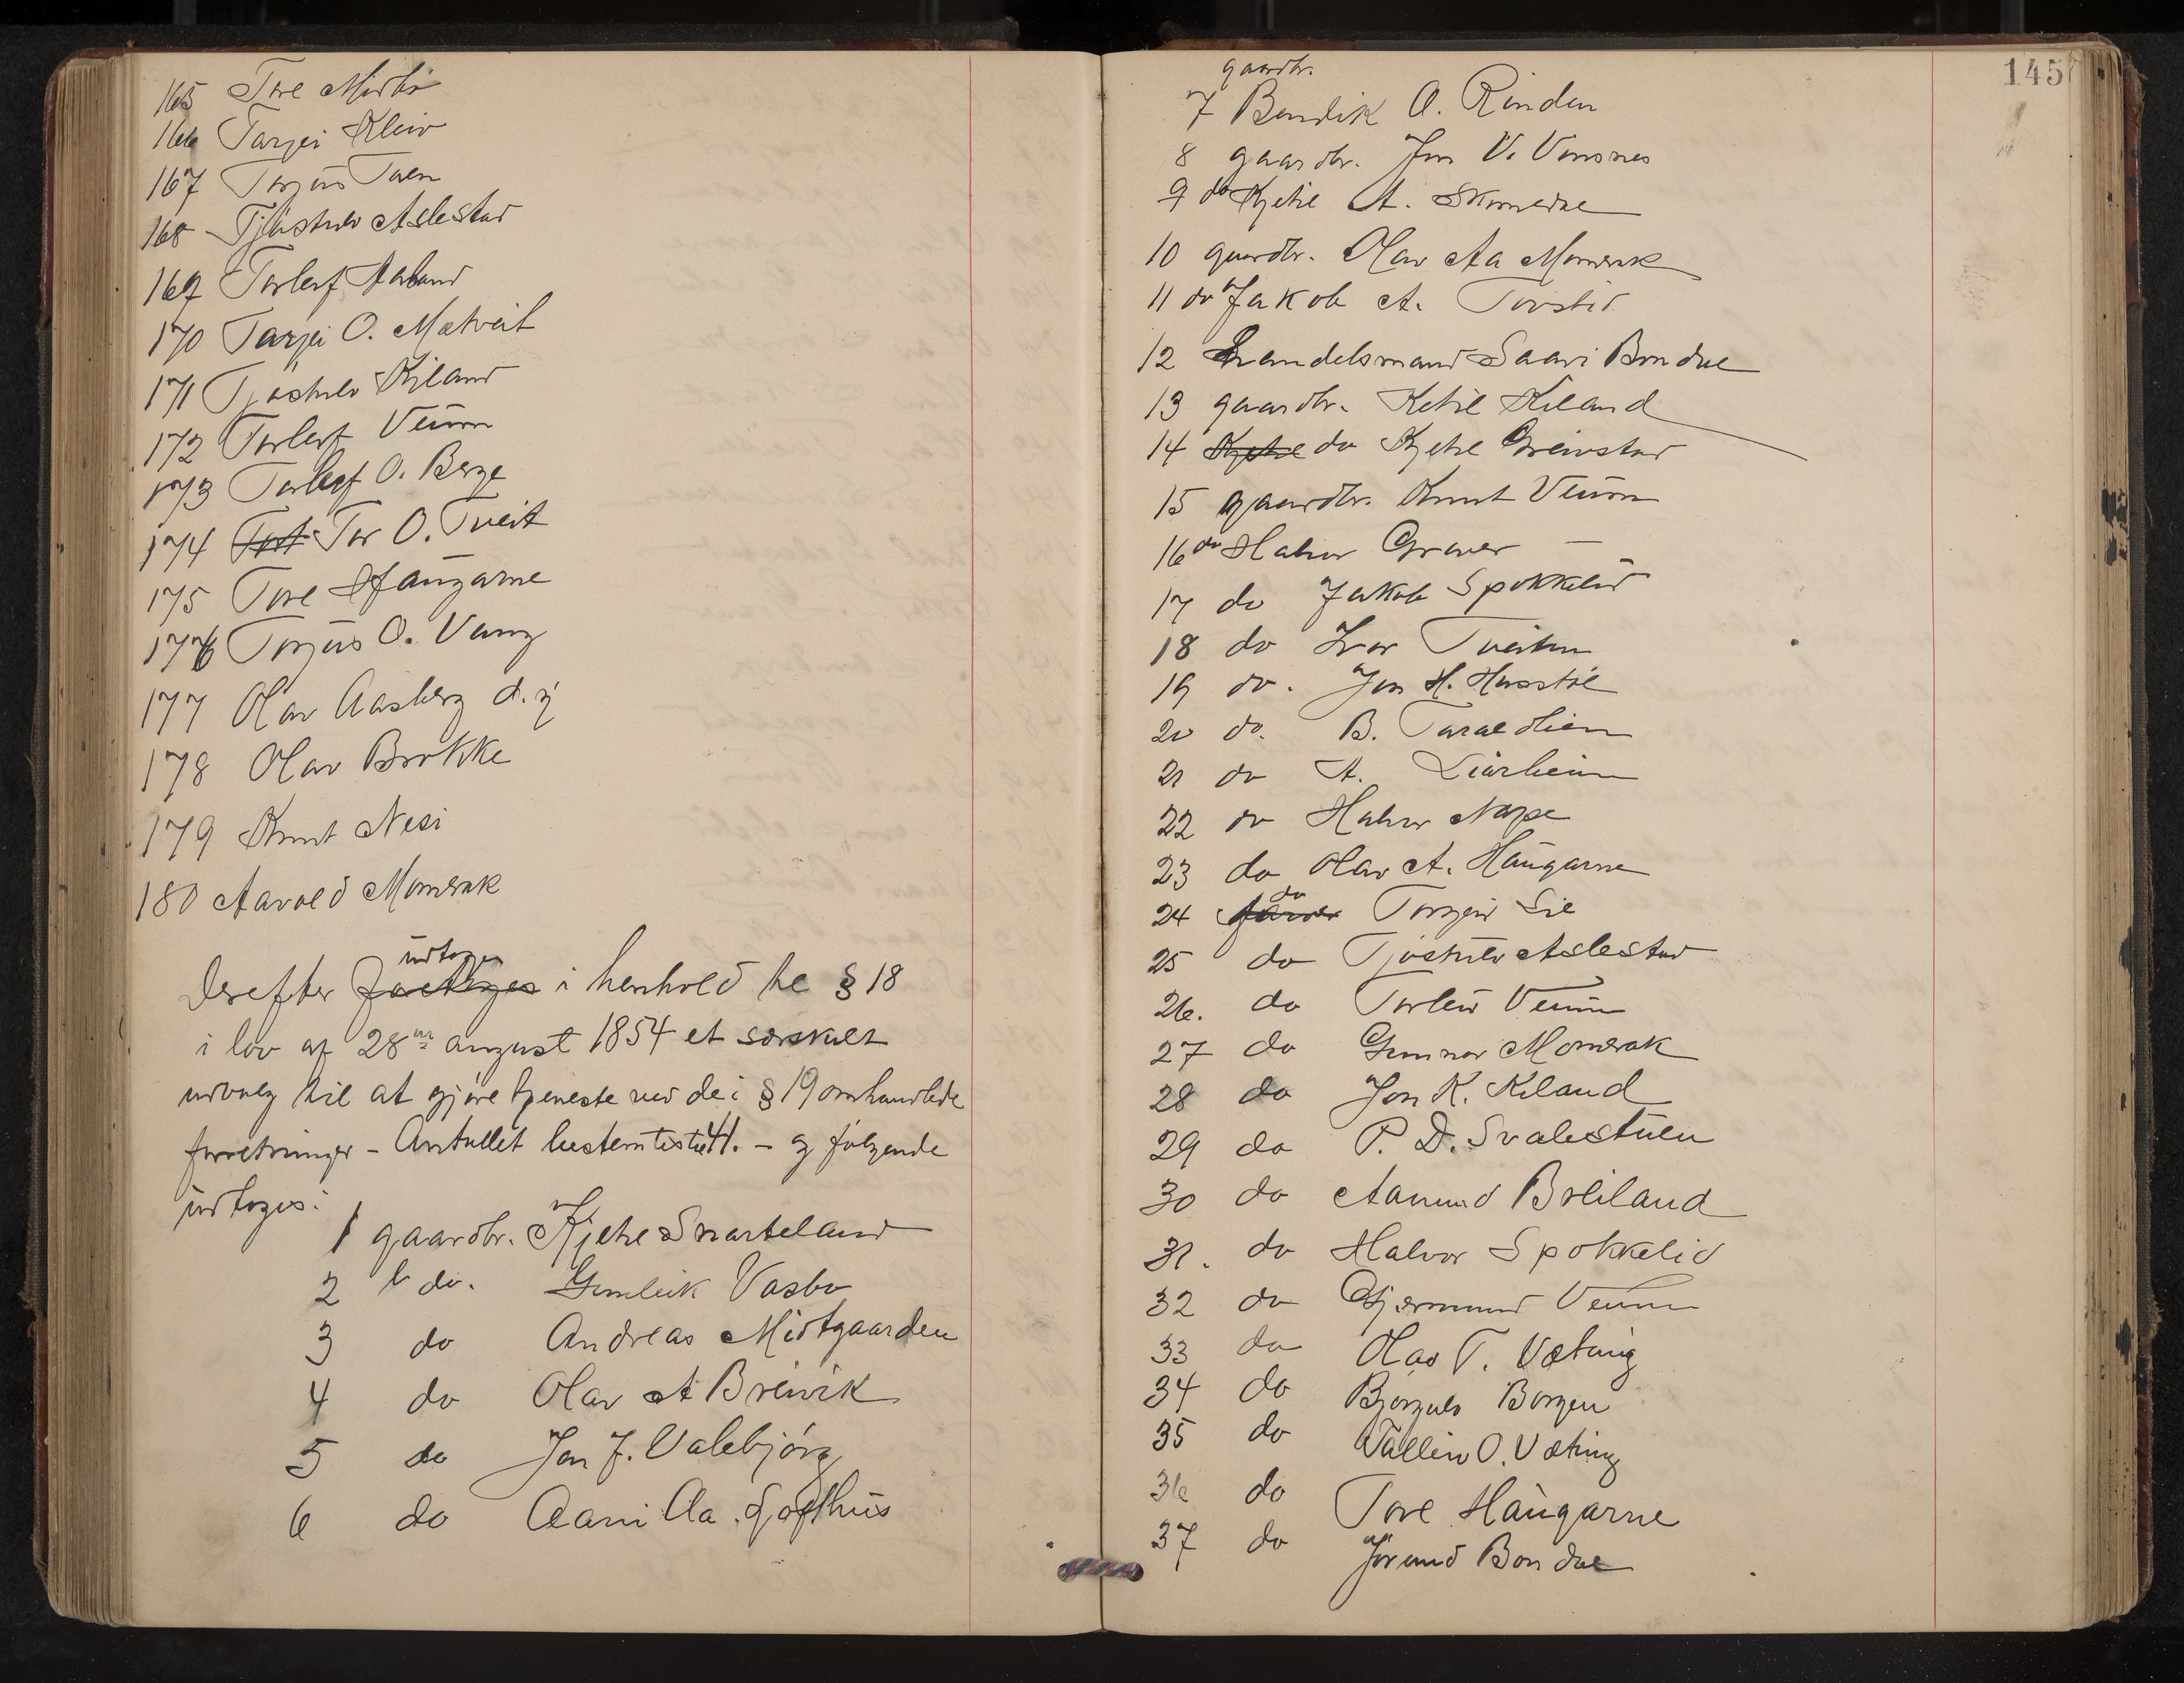 165 Tore Midbø
166 Tarjei Kleiv
167 Torjus Tveen
168 Tjøstulv Aslestad
169 Torleif Aaband
170 Tarjei O. Mætveit
171 Tjøstulv Kiland
172 Torleif Veum
173 Torleif O. Berge
174 Tor O. Tveit
175 Tore Haugarne
176 Torjus O. Vang
177 Olav Aasberg d.y
178 Olav Brokke
179 Knut Nesi
180 Aavold Momrak
udtoges
Derefter foretoges i henhold til § 18
i lov af 28de august 1854 et særskilt
udvalg til at gjøre tjeneste ved de i § 19 omhandlede
forretninger – Antallet bestemtes til 41. – og følgende
udtoges:
1 gaardbr. Kjetil Svarteland
2 do. Gunleik Vasbø
3 do Andreas Midtgaarden
4 do Olav A Breivik
5 do Jon J. Valebjørg
6 do Aani Aa. Gofthus
145
gaardbr.
7 Bendik O. Rinden
8 gaardbr. Jon V. Vinsnes
9 do Kjetil A. Skomedal
10 gaardbr. Olav Aa Momrak
11 do Jakob A. Torstid
12 handelsmand Saavi Bondal
13 gaardbr. Ketil Kiland
14 Kjetil do Kjetil Greivstad
15 gaardbr. Knut Veum
16 do Halvor Graver
17 do Jakob Spokkelid
18 do Ivar Tveiten
19 do. Jon H. Husstøl
20 do. B. Taraldlien
21 do A. Liarheim
22 do Halvor Nape
23 do Olav A. Haugarne
do
24 Torgeir Lie
25 do Tjøstulv Aslestad
26. do Torleiv Veum
27 do Gunnar Momrak
28 do Jon K. Kiland
29 do P. D. Svalestuen
30 do Aanund Breiland
31. do Halvor Spokkelid
32 do Gjermund Veum
33 do Olav T. Væting
34 do Bjørgulv Borgen
35 do Talleiv O. Væting
36 do Tore Haugarne
37 do Jørund Bondal